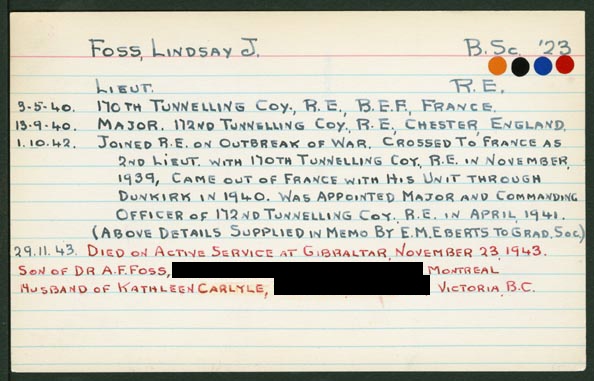 FOSS, LINDSAY J. B.Sc. '23
LIEUT. R.E.
3-5-40. 170TH TUNNELLING COY., R.E., B.E.F., FRANCE.
13-9-40. MAJOR. 172ND TUNNELLING COY., R.E., CHESTER, ENGLAND.
1.10.42. JOINED R.E. ON OUTBREAK OF WAR. CROSSED TO FRANCE AS
2ND LIEUT. WITH 170TH TUNNELLING COY., R.E. IN NOVEMBER,
1939, CAME OUT OF FRANCE WITH HIS UNIT THROUGH
DUNKIRK IN 1940. WAS APPOINTED MAJOR AND COMMANDING
OFFICER OF 172ND TUNNELLING COY. R.E. IN APRIL 1941.
(ABOVE DETAILS SUPPLIED IN MEMO BY E.M. EBERTS TO GRAD. SOC.)
29.11.43. DIED ON ACTIVE SERVICE AT GIBRALTAR, NOVEMBER 23, 1943.
SON OF DR A.F. FOSS, MONTREAL
HUSBAND OF KATHLEEN CARLYLE, VICTORIA, B.C.